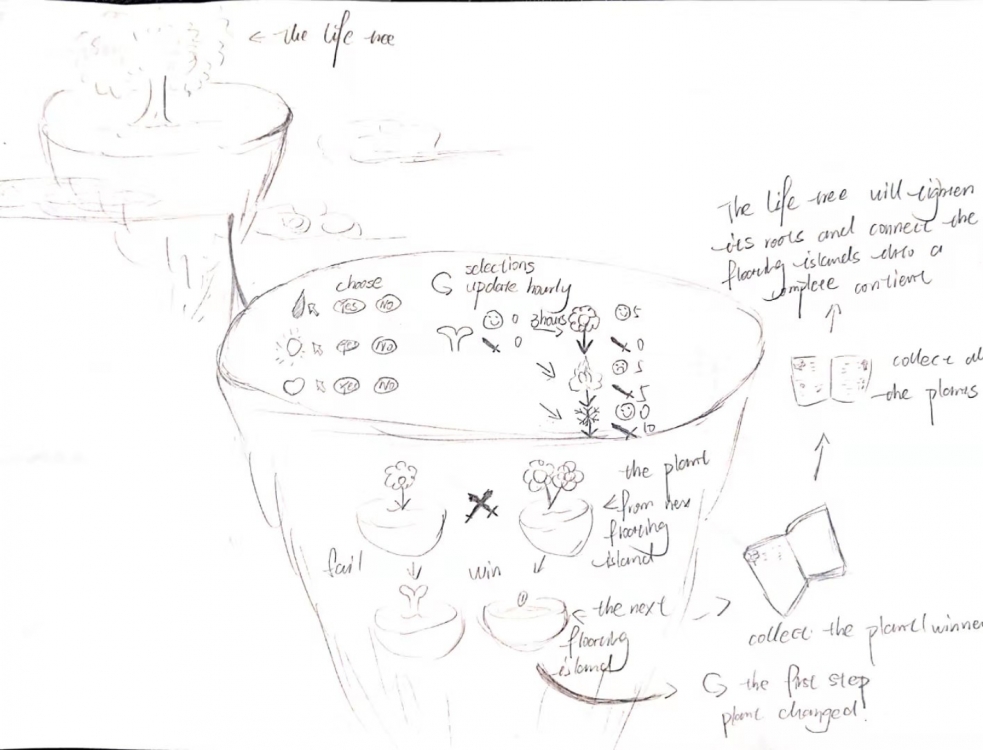 ← the life tree
choose
Yes No
Yes No
Yes No
selections
update hourly
0
0
3 hours
5
0
5
5
0
10
The life tree will tighten
its roots and connect the
floating islands into a
complete continent
collect all
the plants
the plant
from next
floating
island
fail
win
the next
floating
island
collect the plant/winner
the first step
plant changed!